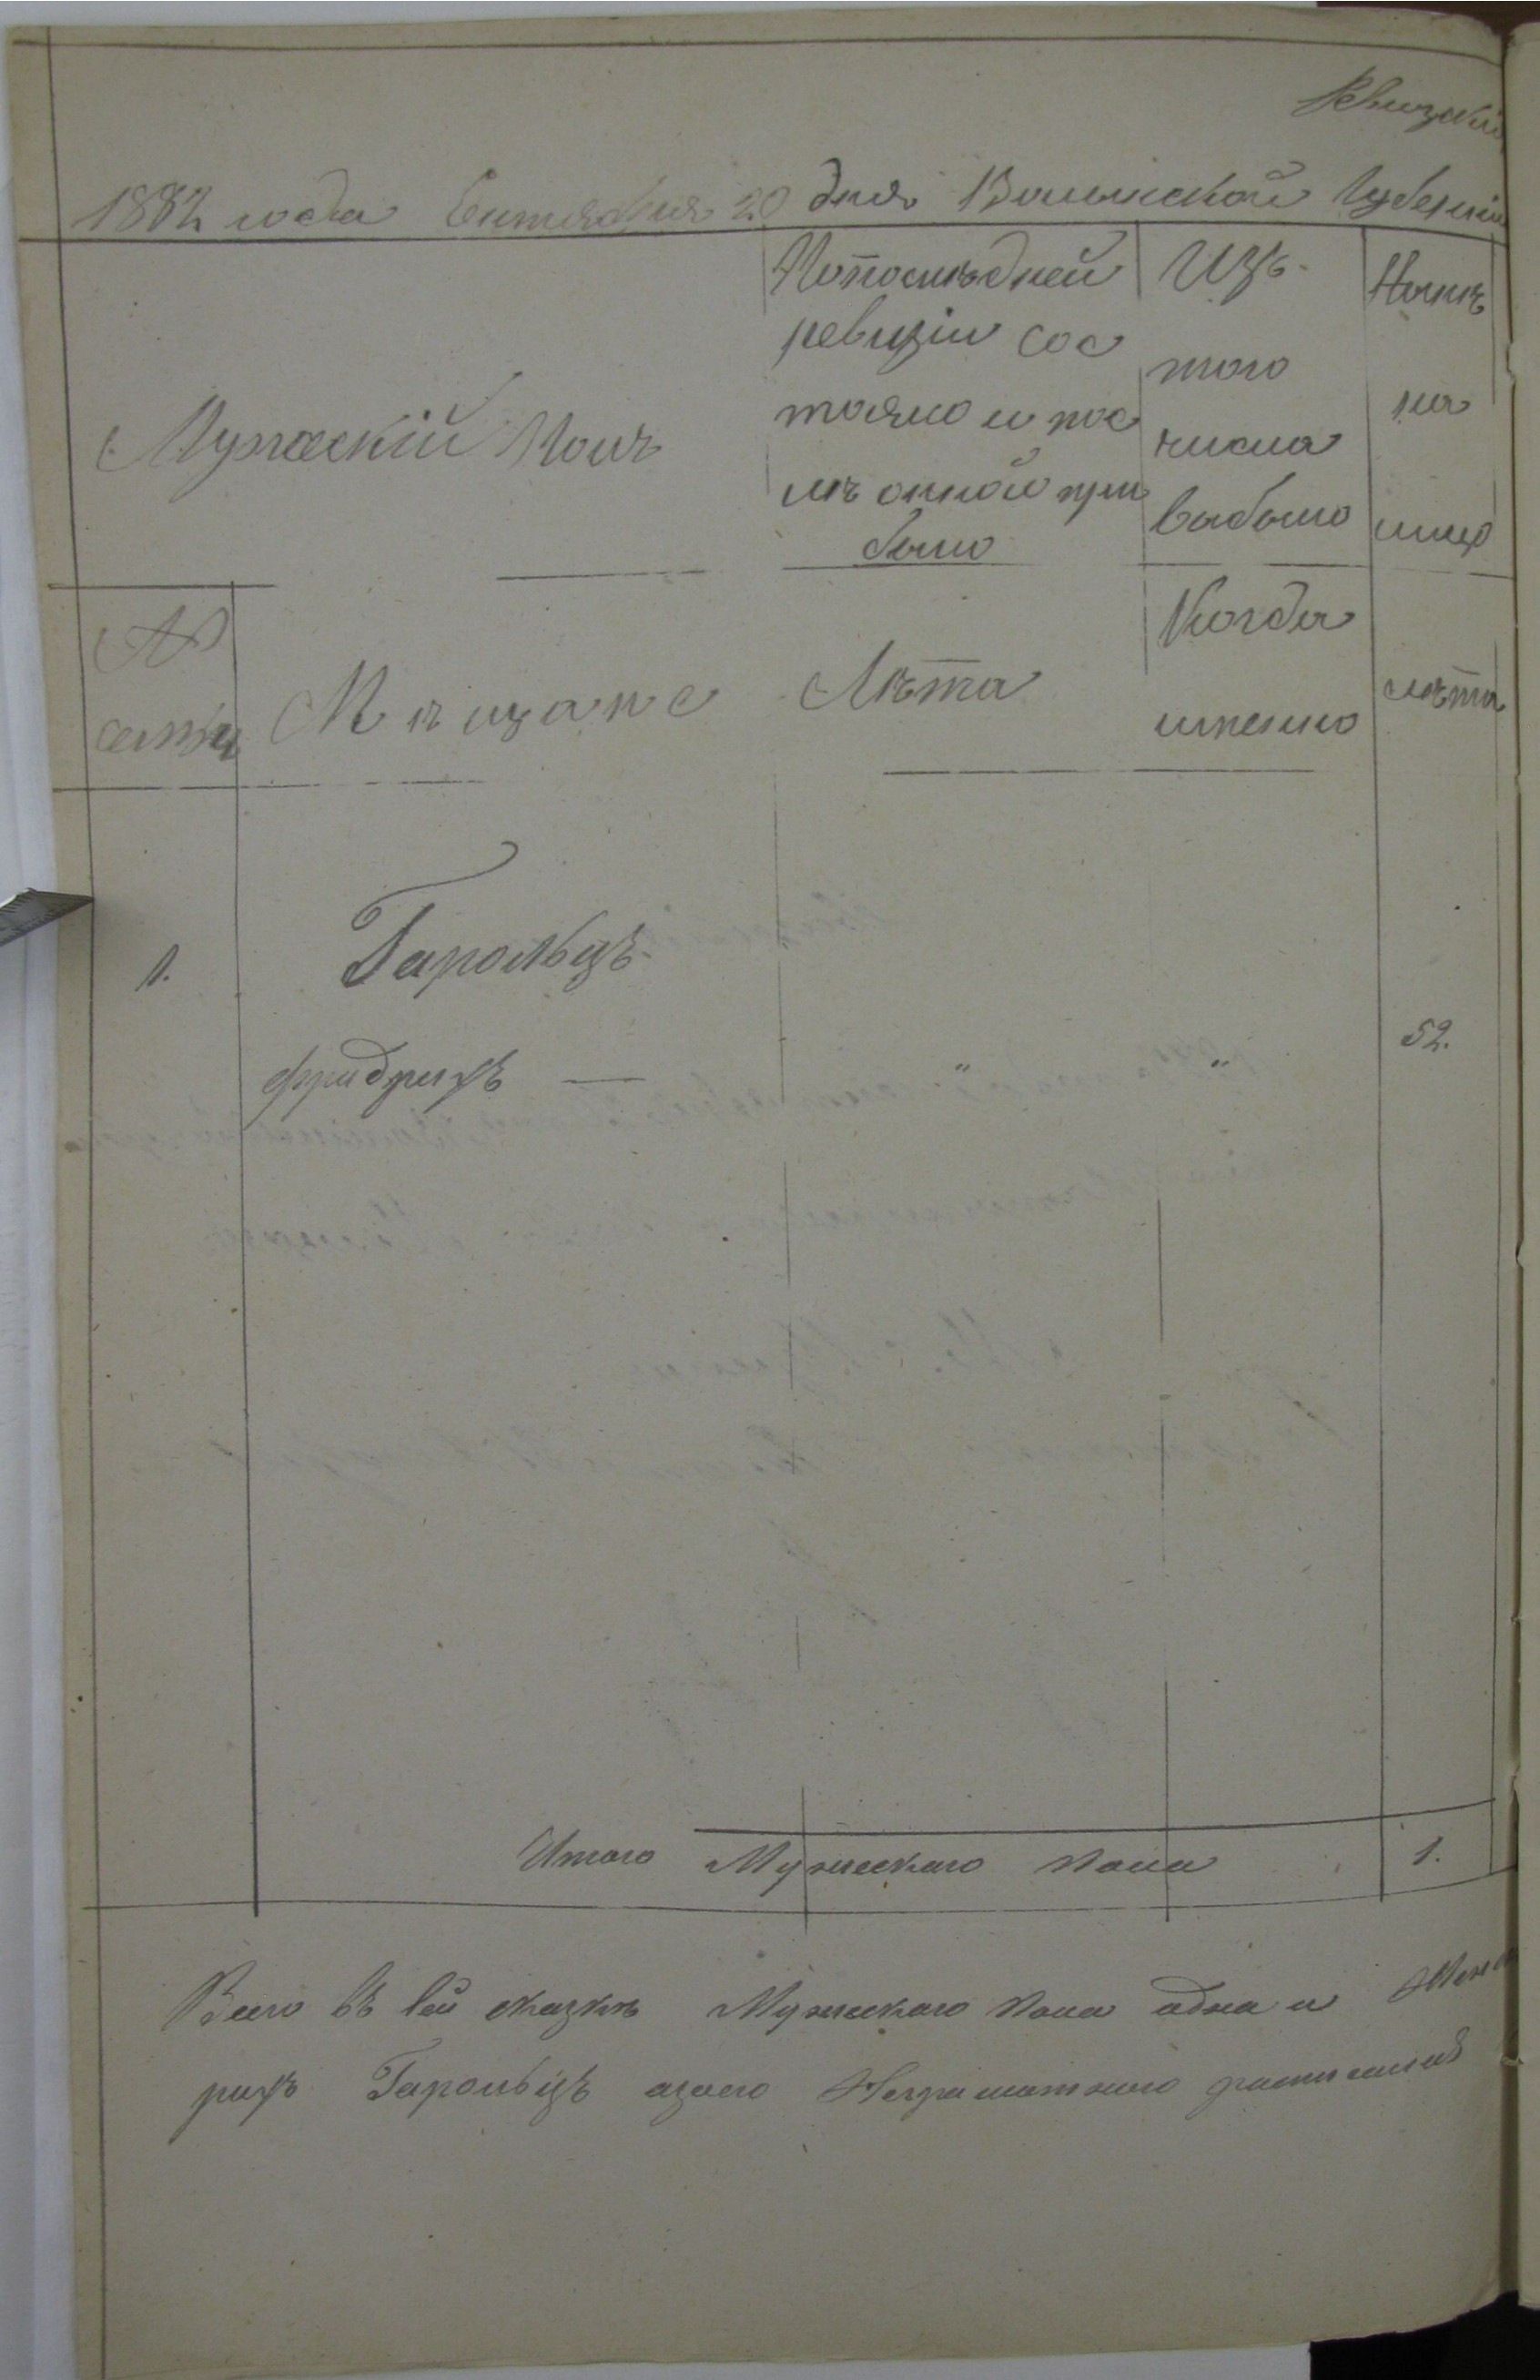 Ревизскій
1882 года Сентября 20 дня Волынской Губерніи
Мужескій Полъ
Попослѣдней
ревизіи сос
тояло и пос
лѣ онной при
было
Изъ
того
числа
выбыло
Нынѣ
на
лицо
№
семьи
Мѣщане
Лѣта
Когда
именно
лѣта
1. Гарольцъ
фридрихъ — " " 52.
Итого Мужескаго Пола 1.
Всего въ сей сказкѣ Мужескаго Пола одна и
рихъ Гарольцъ азаего Неграмотнаго росписался